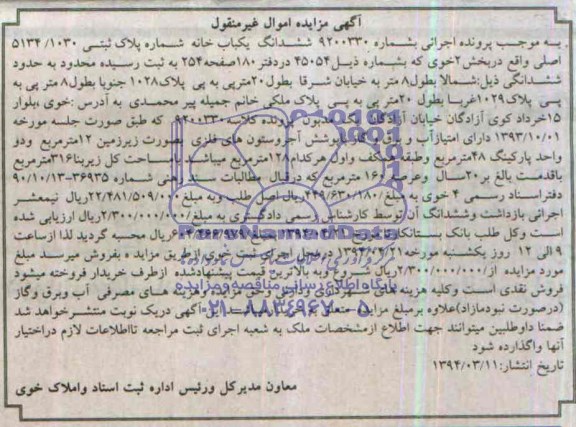 آگهی مزایده اموال غیرمنقول
به موجب پرونده اجرائی بشماره ۹۲۰۰۳۳۰ ششدانگ یکباب خانه شماره پلاک ثبتی ۵۱۳۴/۱۰۳۰
اصلی واقع دربخش۲خوی که بشماره ذیل۴۵۰۵۴ دردفتر۱۸۰صفحه۲۵۴ به ثبت رسیده محدود به حدود
ششدانگی ذیل:شمالا بطول۸متر به خیابان شرقا بطول۲۰مترپی به پی پلاک۱۰۲۸ جنوبا بطول۸متر پی به
پی پلاک۱۰۲۹غربا بطول ۲۰متر پی به پی پلاک ملکی خانم جمیله پیر محمدی به آدرس :خوی،بلوار
۱۵خرداد کوی آزادگان خیابان آزادگان مدیون پرونده کلاسه ۹۲۰۰۳۳۰ که طبق صورت جلسه مورخه
۱۳۹۳/۱۰/۰۱ دارای امتیازآب و برق و گاز پوشش آجروستون های فلزی بصورت زیرزمین ۱۲مترمربع ودو
واحد پارکینگ ۴۸مترمربع وطبقه همکف واول هرکدام۱۲۸مترمربع میباشد بامساحت کل زیربنا۳۱۶مترمربع
باقدمت بالغ بر۲۰سال وعرصه ۱۶۰ مترمربع که درقبال مطالبات سند رهنی شماره ۳۶۹۳۵-۹۰/۱۰/۱۳
دفتراسناد رسمی ۴ خوی به مبلغ۴۴۹/۶۳۰/۱۸۰ریال اصل طلب وبه مبلغ ۲۲/۴۸۱/۵۰۹ریال نیمعشر
اجرائی بازداشت وششدانگ آن توسط کارشناس رسمی دادگستری به مبلغ۲/۳۰۰/۰۰۰/۰۰۰ریال ارزیابی شده
است وکل طلب بانک بستانکار محسبه گردید لذا ازساعت
۹ الی ۱۲ روز یکشنبه مورخه درمحل اجرای ثبت خوی ازطریق مزایده بفروش میرسد مبلغ
مورد مزایده از۲/۳۰۰/۰۰۰/۰۰۰ریال شروع وبه بالاترین قیمت پیشنهادشده ازطرف خریدار فروخته میشود
فروش نقدی است وکلیه هزینه های شهرداری ودارائی وحق مزایده وهزینه های مصرفی آب وبرق وگاز
(درصورت نبودمازاد)علاوه برمبلغ مزایده متعلق به خریدار میباشد این آگهی دریک نوبت منتشرخواهد شد
ضمنا داوطلبین میتوانند جهت اطلاع ازمشخصات ملک به شعبه اجرای ثبت مراجعه تااطلاعات لازم دراختیار
آنها واگذارده شود
تاریخ انتشار:۱۳۹۴/۰۳/۱۱
معاون مدیرکل ورئیس اداره ثبت اسناد واملاک خوی
پایگاه اطلاع رسانی مناقصه ومزایده
۰۲۱-۸۸۳۴۹۶۷۰-۵